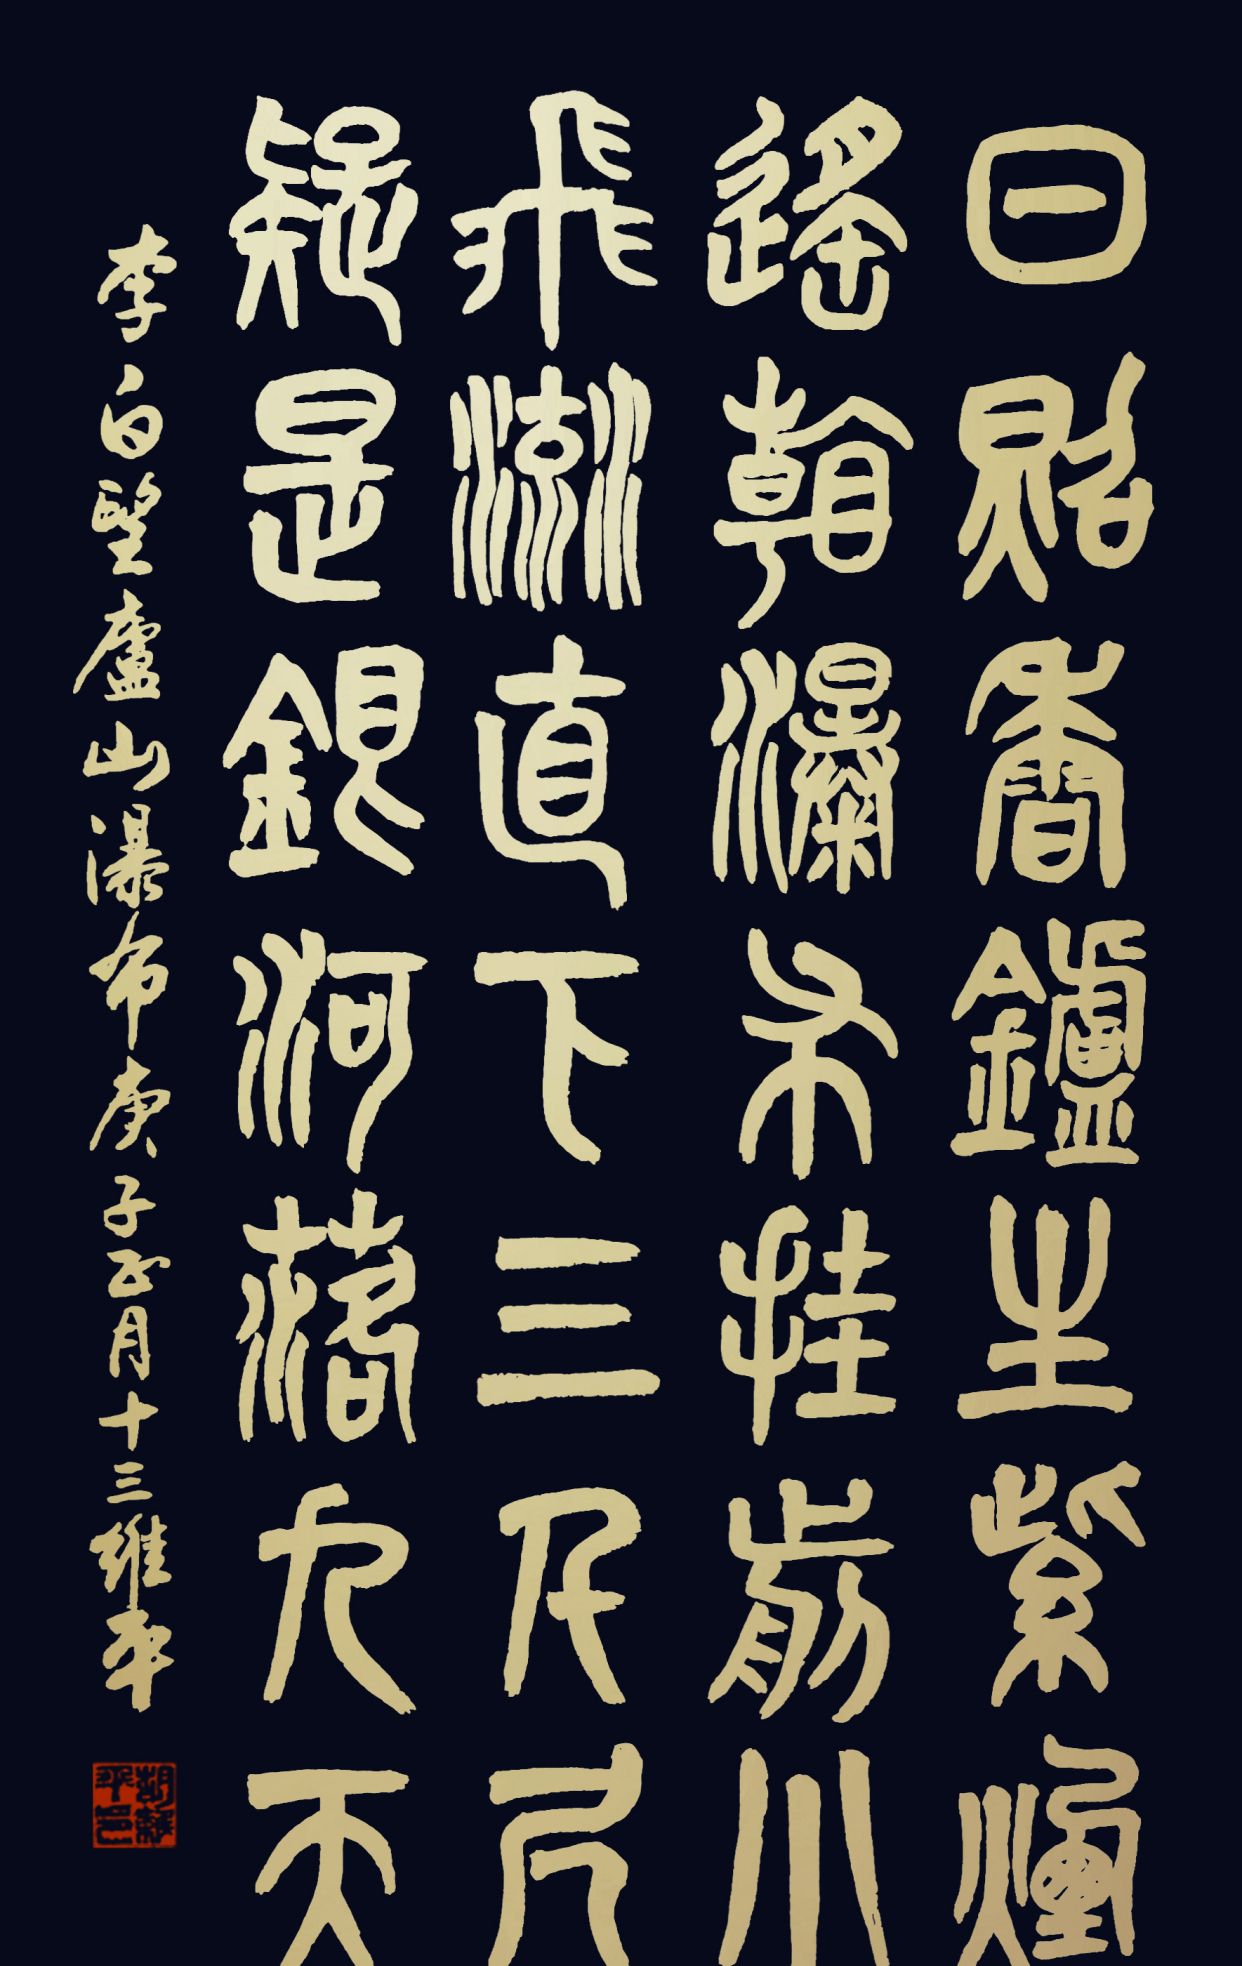 日照香鑪生紫煙
遙看瀑布挂前川
飛流直下三千尺
疑是銀河落九天
李白望廬山瀑布庚子正月十三維平
胡維平印